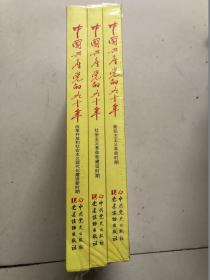 中国共产党的九十年
改革开放和社会主义现代化建设新时期
中共党史出版社
党建读物出版社
中国共产党的九十年
社会主义革命和建设时期
中共党史出版社
党建读物出版社
中国共产党的九十年
新民主主义革命时期
中共党史出版社
党建读物出版社